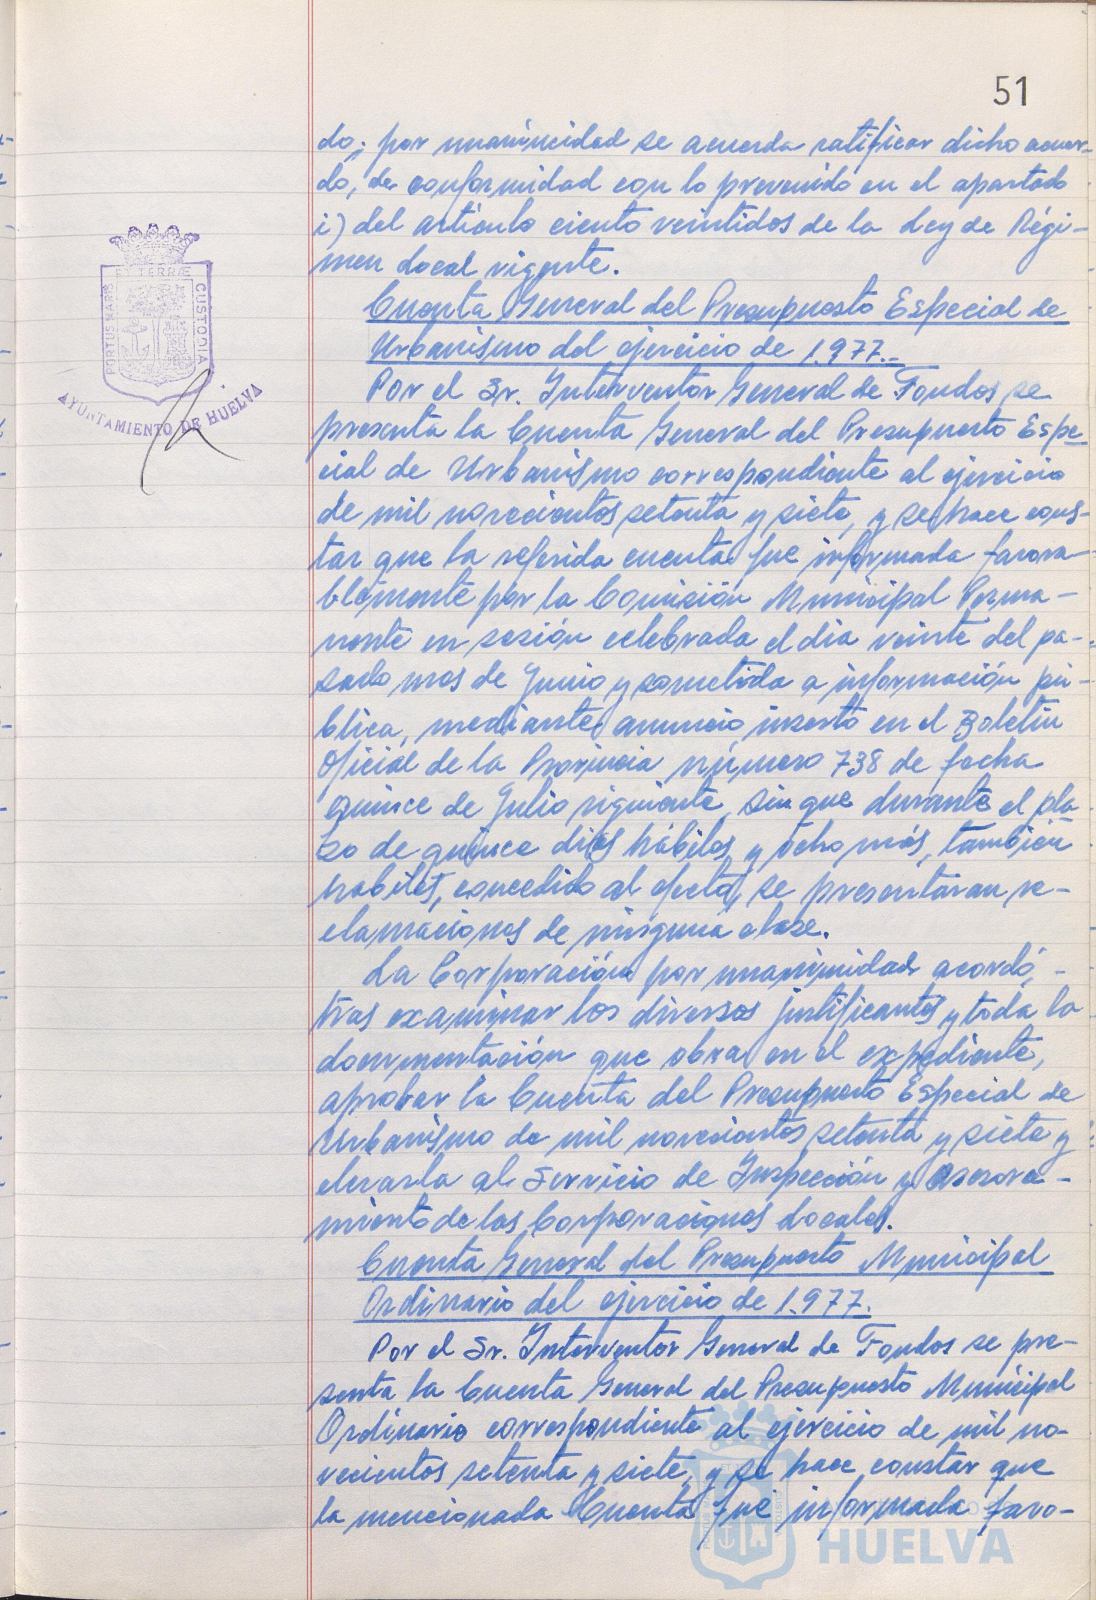 51
do; por unanimidad se acuerda ratificar dicho acuer-
do, de conformidad con lo prevenido en el apartado
i) del artículo ciento veintidos de la Ley de Régi-
men Local vigente.
Cuenta General del Presupuesto Especial de
Urbanismo del ejercicio de 1.977.-
Por el Sr. Interventor General de Fondos se
presenta la Cuenta General del Presupuesto Espe-
cial de Urbanismo correspondiente al ejercicio
de mil novecientos setenta y siete, y se hace cons-
tar que la referida cuenta fue informada favora-
blemente por la Comisión Municipal Perma-
nente en sesión celebrada el dia veinte del pa-
sado mes de Junio y sometida a información pú-
blica, mediante anuncio inserto en el Boletin
Oficial de la Provincia número 738 de fecha
quince de Julio siguiente, sin que durante el pla-
zo de quince dias hábiles, y ocho más, también
habiles, concedido al efecto, se presentaran re-
clamaciones de ninguna clase.
La Corporación por unanimidad acordó, -
tras examinar los diversos justificantes y toda la
documentación que obra en el expediente,
aprobar la Cuenta del Presupuesto Especial de
Urbanismo de mil novecientos setenta y siete y
elevarla al Servicio de Inspección y Asesora-
miento de las Corporaciones Locales.
Cuenta General del Presupuesto Municipal
Ordinario del ejercicio de 1.977.
Por el Sr. Interventor General de Fondos se pre-
senta la Cuenta General del Presupuesto Municipal
Ordinario correspondiente al ejercicio de mil no-
vecientos setenta y siete, y se hace constar que
la mencionada Cuenta fué informada favo-
PORTUS MARIS ET TERRÆ CUSTODIA
AYUNTAMIENTO DE HUELVA
HUELVA